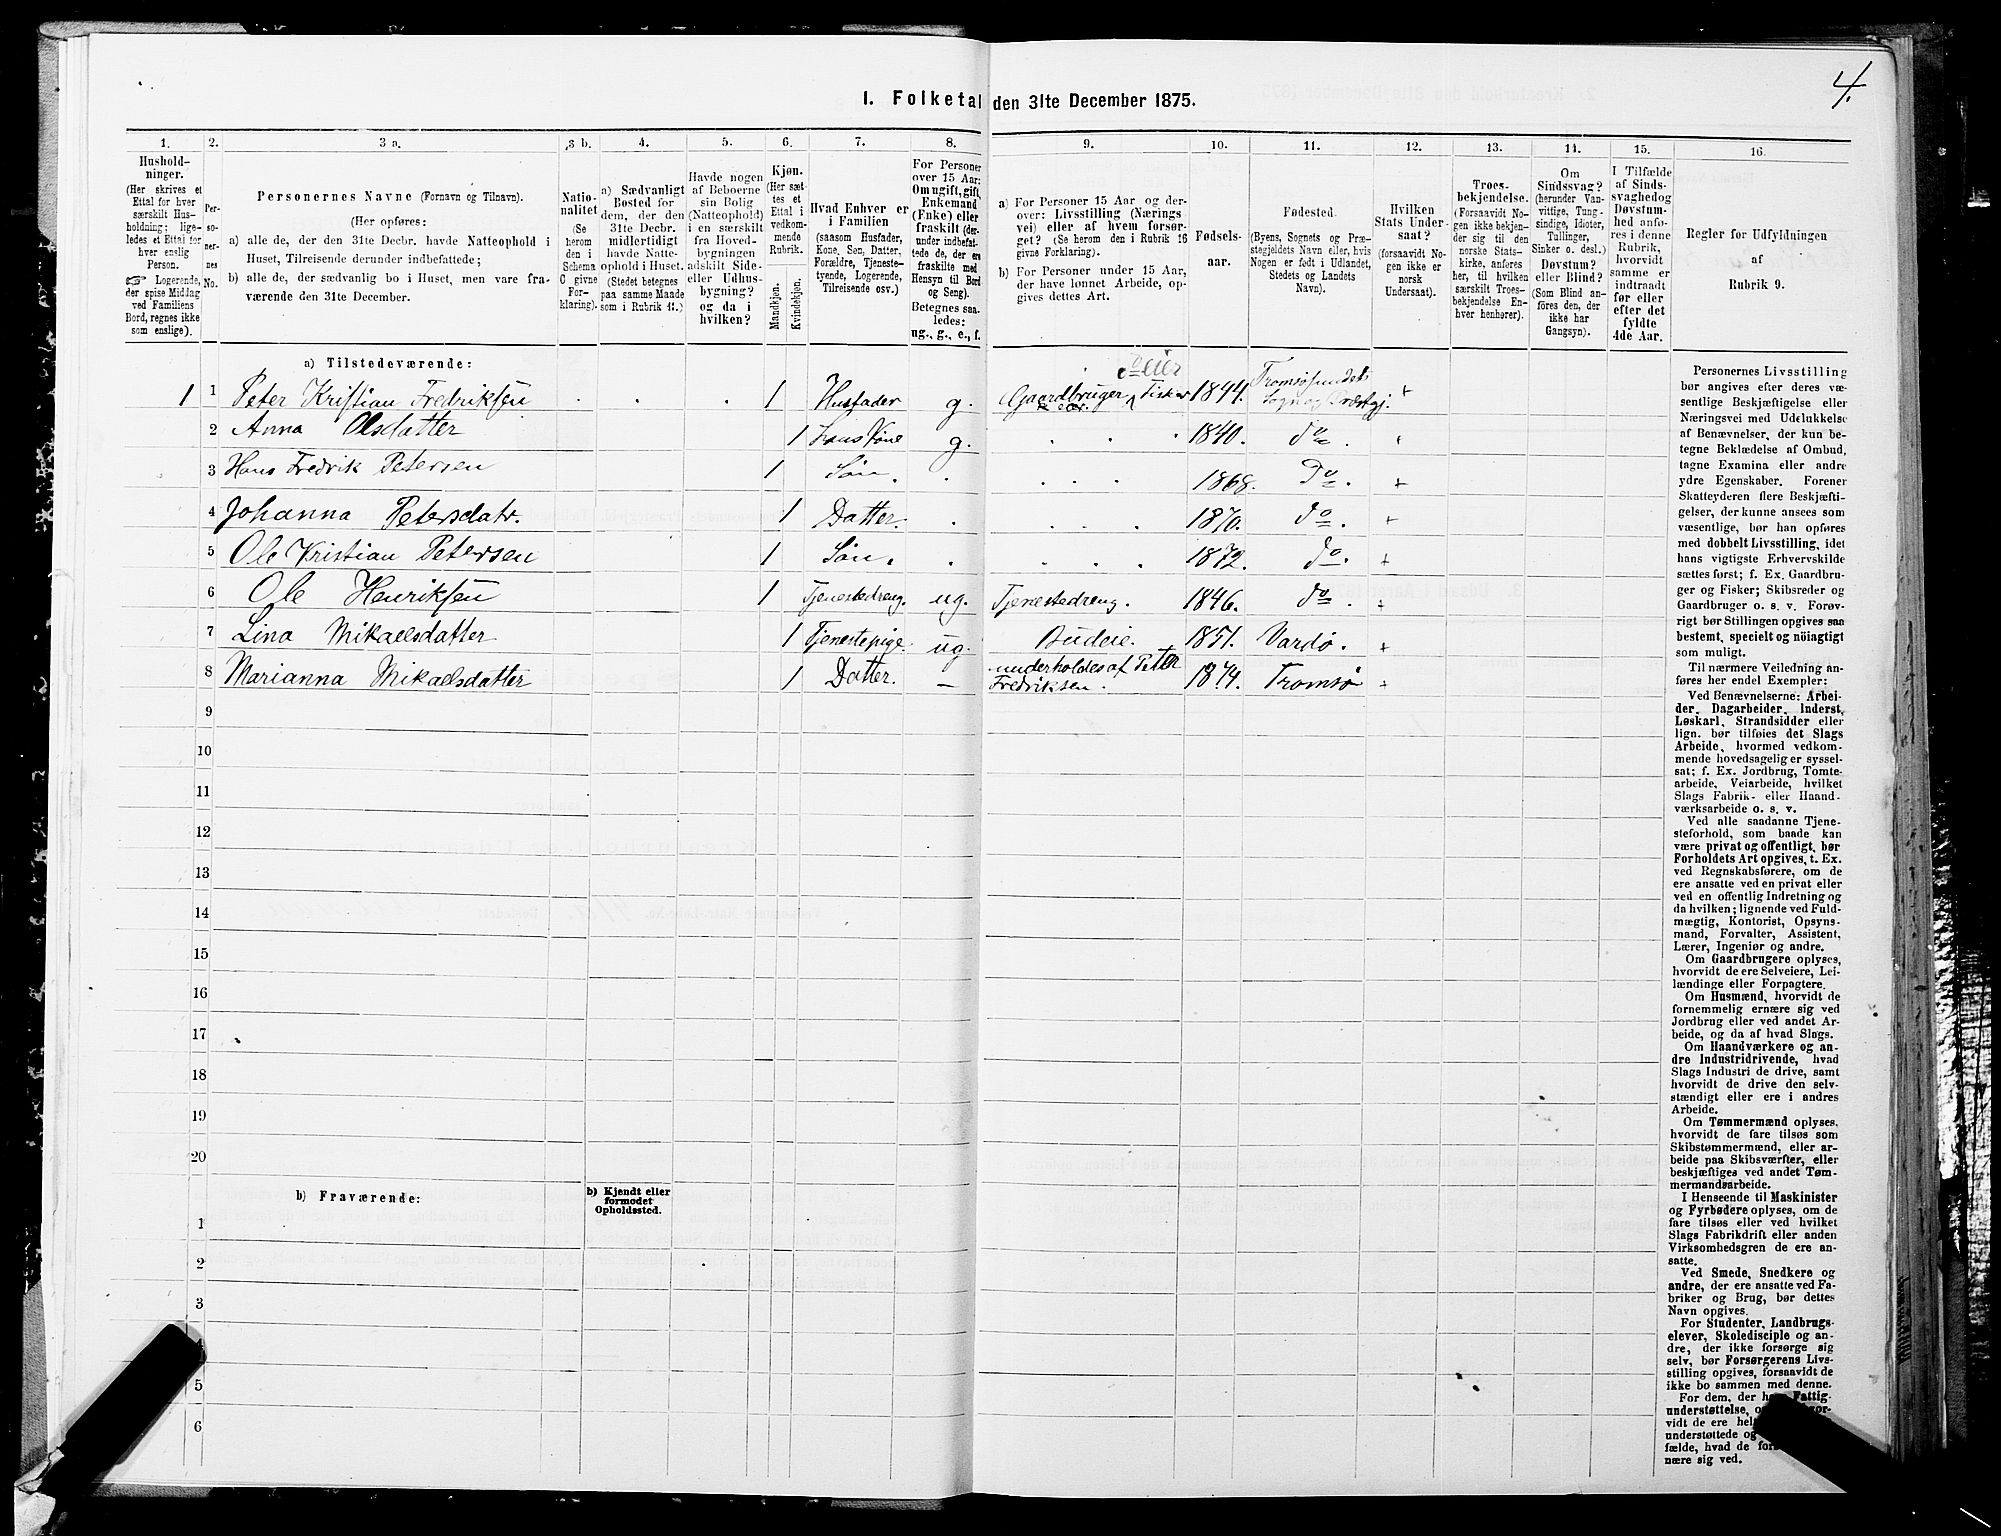 4.
I. Folketal den 31te December 1875.
1.
2.
3 a.
3 b.
4.
5.
6.
7.
8.
9.
10.
11.
12.
13.
14.
15.
16.
Husholdninger.
(Her skrives et
Ettal for hver
særskilt Husholdning;
ligeledes et Ettal for
hver enslig
Person.
☞ Logerende,
der spise Middag
ved Familiens
Bord, regnes ikke
som enslige).
Personernes No.
Personernes Navne (Fornavn og Tilnavn).
(Her opføres:
a) alle de, der den 31te Decbr. havde Natteophold i
Huset, Tilreisende derunder indbefattede;
b) alle de, der sædvanlig bo i Huset, men vare fraværende
den 31te December.
Nationalitet
(Se
herom
den i
Schema
C givne
Forklaring).
a) Sædvanligt
Bosted for
dem, der den
31te Decbr.
midlertidigt
havde Natteophold
i Huset.
(Stedet betegnes
paa samme Maade
som i Rubrik 11.)
Havde nogen
af Beboerne
sin Bolig
(Natteophold)
i en særskilt
fra Hovedbygningen
adskilt Side-
eller Udhusbygning?
og da i
hvilken?
Kjøn.
(Her sættes
et
Ettal i
vedkommende
Rubrik.
Mandkjøn.
Kvindekjøn.
Hvad Enhver er
i Familien
(saasom Husfader,
Kone, Søn, Datter,
Forældre, Tjenestetyende,
Logerende,
Tilreisende osv.)
For Personer
over 15 Aar:
Om ugift, gift,
Enkemand
(Enke) eller
fraskilt (derunder
indbefattede
de, der ere
fraskilte med
Hensyn til Bord
og Seng).
Betegnes saaledes:
ug., g., e., f.
a) For Personer 15 Aar og derover:
Livsstilling (Næringsvei)
eller af hvem forsørget?
(Se herom den i Rubrik 16
givne Forklaring).
b) For Personer under 15 Aar,
der have lønnet Arbeide, opgives
dettes Art.
Fødselsaar.
Fødested.
(Byens, Sognets og Præstegjeldets
Navn eller, hvis
Nogen er født i Udlandet,
Stedets og Landets
Navn).
Hvilken
Stats Undersaat?
(forsaavidt Nogen
ikke er
norsk
Undersaat).
Troesbekjendelse.
(Forsaavidt Nogen
ikke bekjender
sig til den
norske Statskirke,
anføres
her, til hvilken
særskilt Troesbekjendelse
Enhver
henhører).
Om
Sindssvag?
(herunder Vanvittige,
Tungsindige,
Idioter,
Tullinger,
Sinker o. desl.)
Døvstum?
eller Blind?
(Som Blind anføres
den, der
ikke har
Gangsyn).
I Tilfælde
af Sindssvaghed
og
Døvstumhed
anføres
i denne
Rubrik,
hvorvidt
samme er
indtraadt
før eller
efter det
fyldte
4de Aar.
Regler for Udfyldningen
af
Rubrik 9.
a) Tilstedeværende:
Leier
1 1 Peter Kristian Fredriksen 1 Husfader g. Gaardbruger Fisker 1844. Tromsøsundets Sogn og Præstgj. +
2 Anna Olsdatter 1 hans Kone g. 1840. do. +
3 Hans Fredrik Petersen 1 Søn. 1868. Do. +
4 Johanna Petersdatr. 1 Datter. 1870. do. +
5 Ole Kristian Petersen 1 Søn. 1872. do. +
6 Ole Henriksen 1 Tjenestedreng. ug. Tjenestedreng. 1846. do. +
7 Lina Mikaelsdatter 1 Tjenestepige. ug. Budeie. 1851. Vardø. +
8 Marianna Mikaelsdatter 1 Datter. — underholdes af Peter Fredriksen. 1874. Tromsø +
9
10
11
12
13
14
15
16
17
18
19
20
b) Fraværende:
b) Kjendt eller
formodet
Opholdssted.
1
2
3
5
6
Personernes Livsstilling
bør angives efter deres væsentlige
Beskjæftigelse eller
Næringsvei med Udelukkelse
af Benævnelser, der kun betegne
Beklædelse af Ombud,
tagne Examina eller andre
ydre Egenskaber. Forener
Skatteyderen flere Beskjæftigelser,
der kunne ansees som
væsentlige, bør han opføres
med dobbelt Livsstilling, idet
hans vigtigste Erhvervskilde
sættes først; f. Ex. Gaardbruger
og Fisker; Skibsreder og
Gaardbruger o. s. v. Forøvrigt
bør Stillingen opgives saa
bestemt, specielt og nöiagtigt
som muligt.
Til nærmere Veiledning anføres
her endel Exempler:
Ved Benævnelserne: Arbeider,
Dagarbeider, Inderst,
Løskarl, Strandsidder eller
lign. bør tilføies det Slags
Arbeide, hvormed vedkommende
hovedsagelig er sysselsat;
f. Ex. Jordbrug, Tomtearbeide,
Veiarbeide, hvilket
Slags Fabrik- eller Haandværksarbeide
o. s. v.
Ved alle saadanne Tjenesteforhold,
som baade kan
være privat og offentligt, bør
Forholdets Art opgives, t. Ex.
ved Regnskabsførere, om de
ere ansatte ved en privat eller
ved en offentlig Indretning og
da hvilken; lignende ved Fuldmægtig,
Kontorist, Opsynsmand,
Forvalter, Assistent,
Lærer, Ingeniør og andre.
Om Gaardbrugere oplyses,
hvorvidt de ere Selveiere, Leilændinge
eller Forpagtere.
Om Husmænd, hvorvidt de
fornemmelig ernære sig ved
Jordbrug eller ved andet Arbeide,
og da af hvad Slags.
Om Haandværkere og andre
Industridrivende, hvad
Slags Industri de drive, samt
hvorvidt de drive den selvstændigt
eller ere i andres
Arbeide.
Om Tømmermænd oplyses,
hvorvidt de fare tilsøs som
Skibstømmermænd, eller arbeide
paa Skibsværfter, eller
beskjæftiges ved andet Tømmermandsarbeide.
I Henseende til Maskinister
og Fyrbødere oplyses, om de
fare tilsøs eller ved hvilket
Slags Fabrikdrift eller anden
Virksomhedsgren de ere ansatte.
Ved Smede, Snedkere og
andre, der ere ansatte ved Fabriker
og Brug, bør dettes
Navn opgives.
For Studenter, Landbrugselever,
Skoledisciple og andre,
der ikke forsørge sig
selv, bør Forsørgerens Livsstilling
opgives, forsaavidt de
ikke bo sammen med denne.
For dem, der
understøttelse,
vidt de ere
understøttede og
fælde, hvad de
nære sig ved.